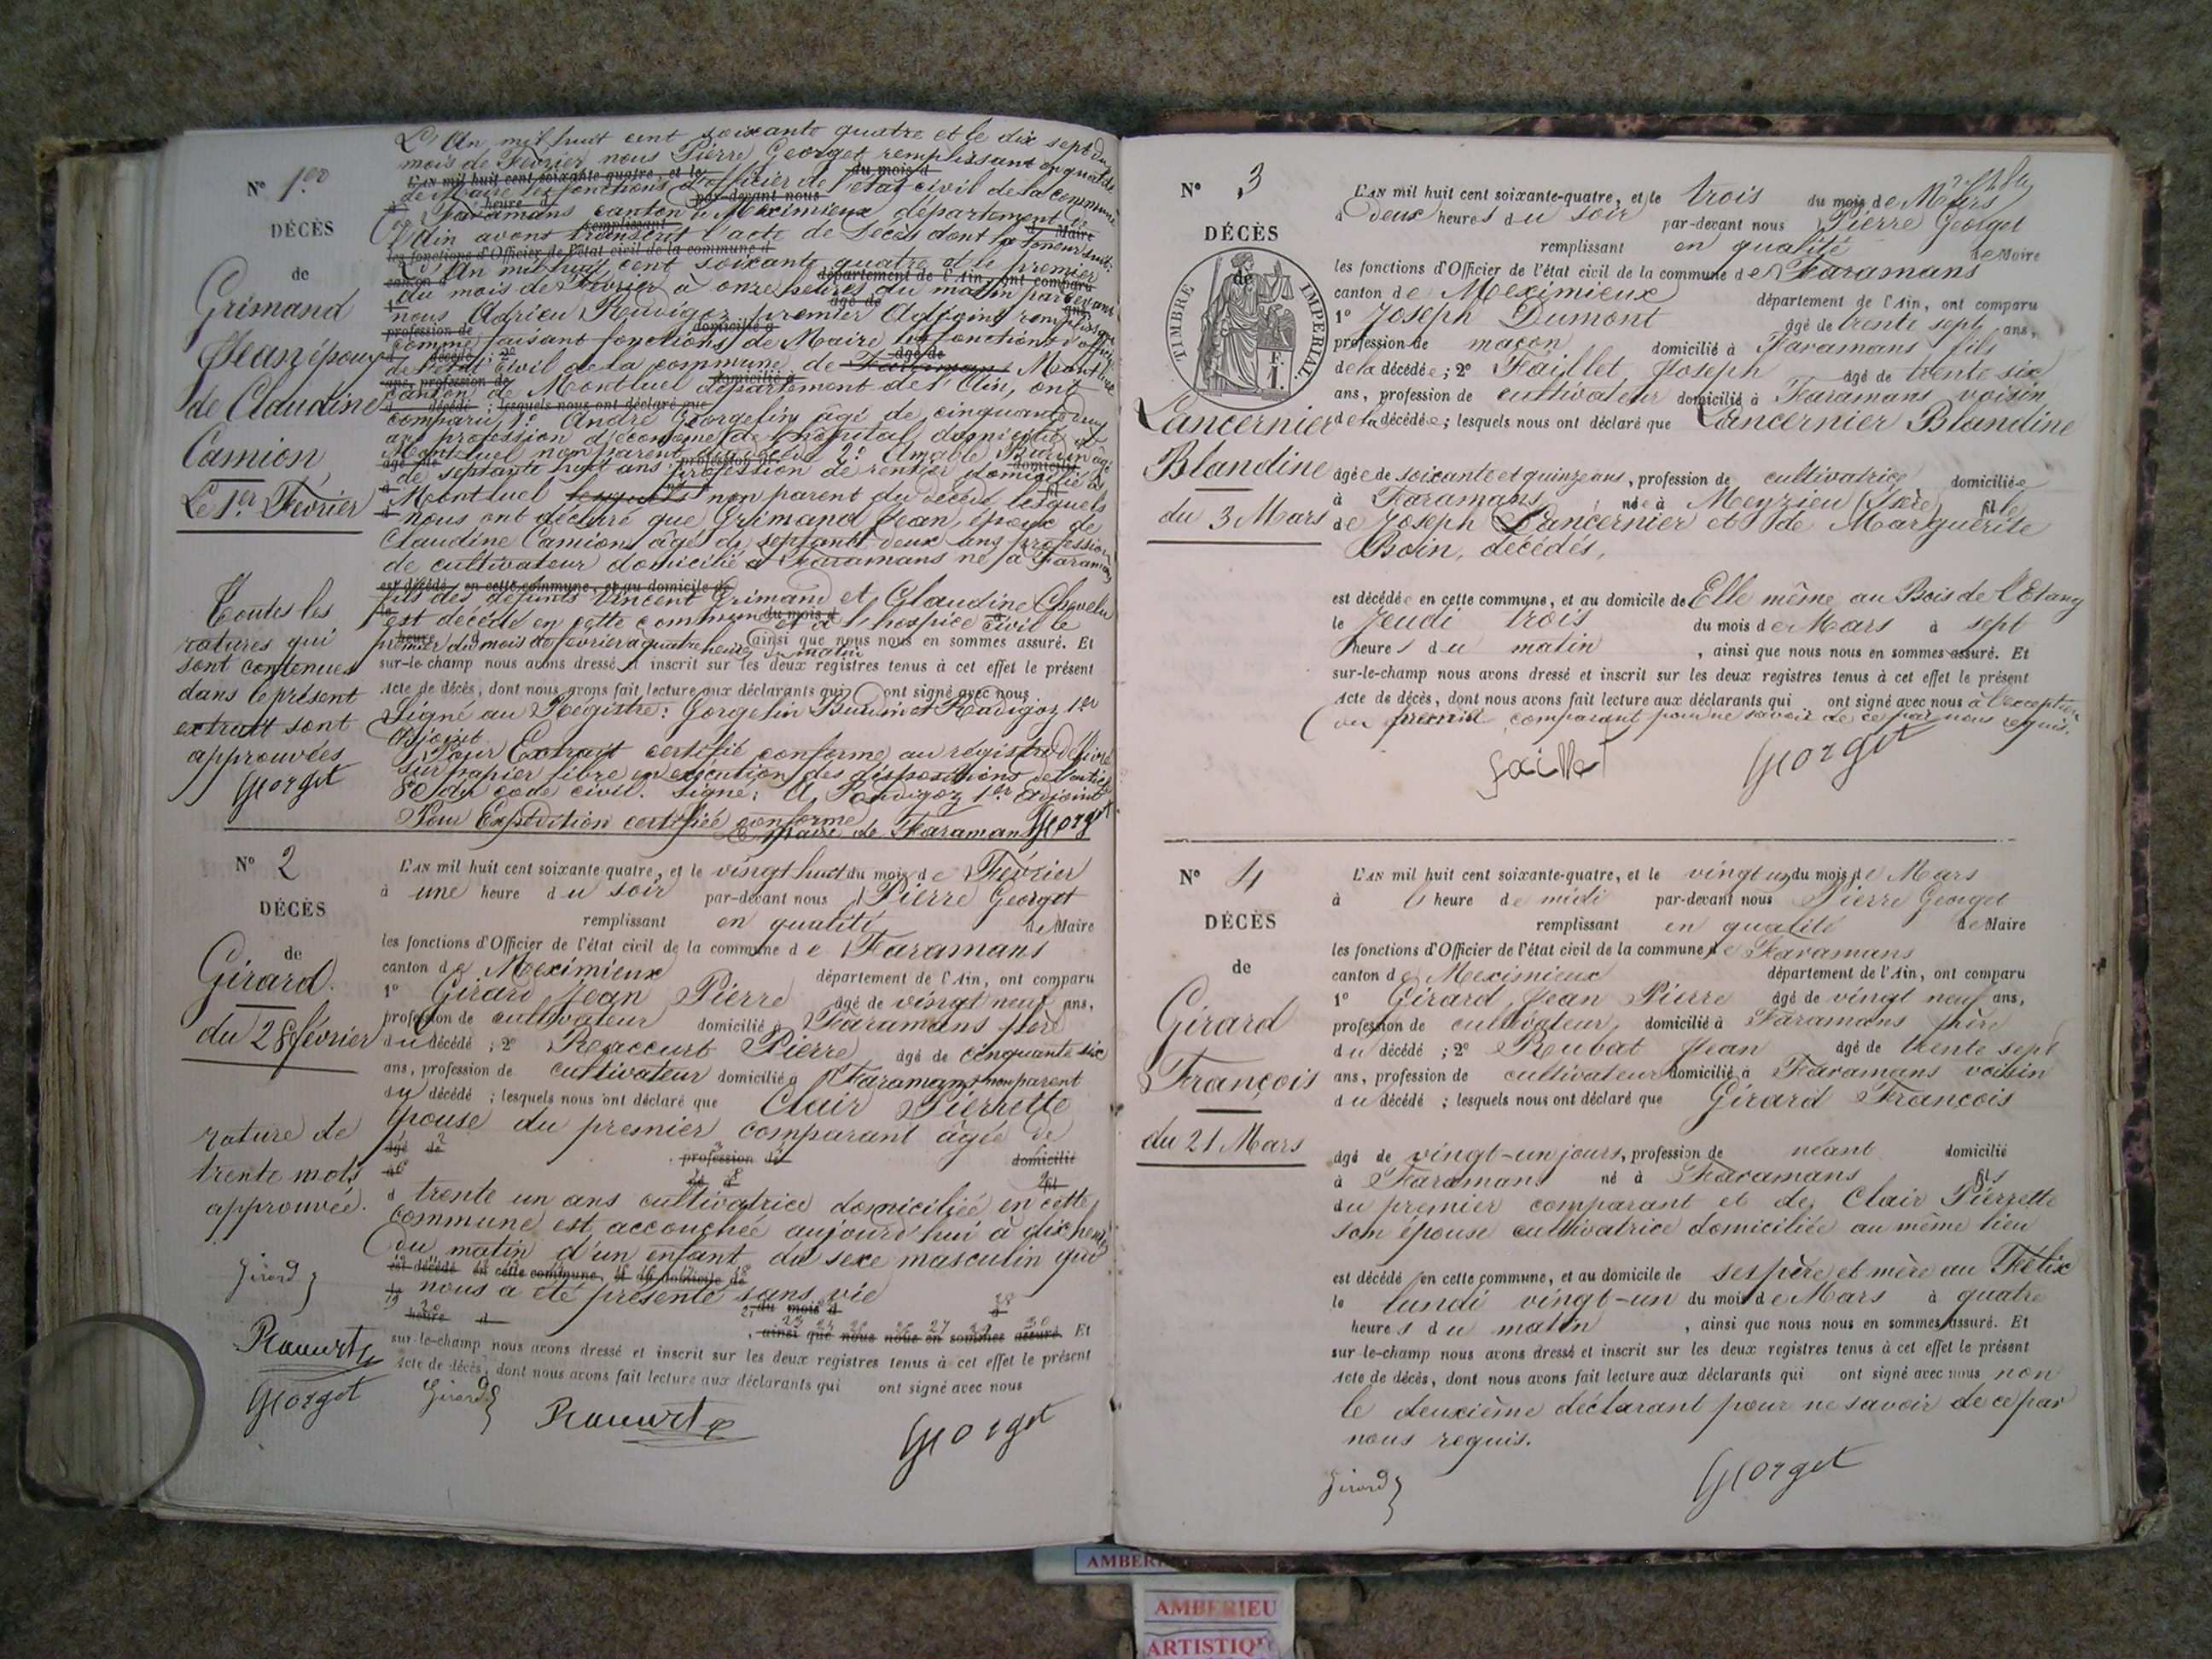 N° 1er
DÉCÈS
de
Grimand
Jean époux
de Claudine
Camion
Le 1er Février
Toutes les
ratures qui
sont contenues
dans le présent
extrait sont
approuvées
Georget
L'An mil huit cent soixante quatre et le dix sept du
mois de Février nous Pierre Georget remplissant en qualité
L'AN mil huit cent soixante-quatre, et le du mois d
de Maire les fonctions d'officier de l'état civil de la commune
heure d par-devant nous
de Faramans canton de Meximieux département de
remplissant d Maire
l'Ain avons transcrit l'acte de Décès dont la teneur suit:
les fonctions d'Officier de l'état civil de la commune d
L'An mil huit cent soixante quatre et le premier
canton d département de l'Ain, ont comparu
du mois de Février à onze heures du matin par devant
nous Adrien Rudigoz premier Adjoint remplissant
profession de domicilié à
comme faisant fonctions de Maire les fonctions d'officier
de l'état Civil de la commune de Faramans Montluel
ans, profession de domicilié à
canton de Montluel département de l'Ain, ont
d décédé ; lesquels nous ont déclaré que
comparu 1° André Gorgelin âgé de cinquante deux
ans profession d'économe de l'hôpital domicilié à
Montluel non parent du décédé 2° Amable Burvin âgé
de septante huit ans profession de rentier domicilié à
Montluel lesquels non parent du décédé lesquels
nous ont déclaré que Grimand Jean, époux de
Claudine Camion, âgé de septante deux ans profession
de cultivateur domicilié à Faramans né à Faramans
est décédé en cette commune, et au domicile de
fils des défunts Vincent Grimand et Claudine
est décédé en cette commune et à l'hospice civil le
premier du mois de février à quatre heures du matin ainsi que nous nous en sommes assuré. Et
sur-le-champ nous avons dressé et inscrit sur les deux registres tenus à cet effet le présent
Acte de décès, dont nous avons fait lecture aux déclarants qui ont signé avec nous
Signé au Régistre: Gorgelin Burvin et Rudigoz 1er
Adjoint
Pour Extrait certifié conforme au régistre délivré
sur papier libre en exécution des dispositions de l'article
80 du code civil. Signé: A Rudigoz 1er Adjoint
Pour Expédition certifiée conforme
Le Maire de Faramans Georget
N° 2
DÉCÈS
de
Girard
du 28 février
rature de
trente mots
approuvée.
Girard
Raccurt
Georget
L'AN mil huit cent soixante-quatre, et le vingt huit du mois de Février
à une heure du soir par-devant nous Pierre Georget
remplissant en qualité de Maire
les fonctions d'Officier de l'état civil de la commune de Faramans
canton de Meximieux département de l'Ain, ont comparu
1° Girard Jean Pierre âgé de vingt neuf ans,
profession de cultivateur domicilié à Faramans père
du décédé ; 2° Raccurt Pierre âgé de cinquante six
ans, profession de cultivateur domicilié à Faramans non parent
du décédé ; lesquels nous ont déclaré que Clair Pierrette
épouse du premier comparant âgée de
âgé de profession de domicilié
à né à fil
d trente un ans cultivatrice domiciliée en cette
commune est accouchée aujourd'hui à dix heures
du matin d'un enfant du sexe masculin que
est décédé en cette commune, et au domicile de
le nous a été présenté sans vie
du mois d à
heure d
, ainsi que nous nous en sommes assuré. Et
sur-le-champ nous avons dressé et inscrit sur les deux registres tenus à cet effet le présent
Acte de décès, dont nous avons fait lecture aux déclarants qui ont signé avec nous
Girard Raccurt Georget
N° 3
DÉCÈS
de
TIMBRE IMPÉRIAL
1 F.
Lancernier
Blandine
du 3 Mars
L'AN mil huit cent soixante-quatre, et le trois du mois de Mars
à deux heures du soir par-devant nous Pierre Georget
remplissant en qualité de Maire
les fonctions d'Officier de l'état civil de la commune de Faramans
canton de Meximieux département de l'Ain, ont comparu
1° Joseph Dumont âgé de trente sept ans,
profession de maçon domicilié à Faramans fils
de la décédée ; 2° Faillet Joseph âgé de trente six
ans, profession de cultivateur domicilié à Faramans voisin
de la décédée ; lesquels nous ont déclaré que Lancernier Blandine
âgée de soixante et quinze ans, profession de cultivatrice domiciliée
à Faramans, née à Meyzieu (Isère) fille
de Joseph Lancernier et de Marguerite
Boin, décédés,
est décédée en cette commune, et au domicile de Elle même au Bois de l'Etang
le Jeudi trois du mois de Mars à sept
heures du matin , ainsi que nous nous en sommes assuré. Et
sur-le-champ nous avons dressé et inscrit sur les deux registres tenus à cet effet le présent
Acte de décès, dont nous avons fait lecture aux déclarants qui ont signé avec nous à l'exception
du premier comparant pour ne savoir de ce par nous requis.
faillet Georget
N° 4
DÉCÈS
de
Girard
François
du 21 Mars
L'AN mil huit cent soixante-quatre, et le vingt un du mois de Mars
à heure de midi par-devant nous Pierre Georget
remplissant en qualité de Maire
les fonctions d'Officier de l'état civil de la commune de Faramans
canton de Meximieux département de l'Ain, ont comparu
1° Girard Jean Pierre âgé de vingt neuf ans,
profession de cultivateur domicilié à Faramans père
du décédé ; 2° Rubat Jean âgé de trente sept
ans, profession de cultivateur domicilié à Faramans voisin
du décédé ; lesquels nous ont déclaré que Girard François
âgé de vingt-un jours, profession de néant domicilié
à Faramans né à Faramans fils
du premier comparant et de Clair Pierrette
son épouse cultivatrice domiciliée au même lieu
est décédé en cette commune, et au domicile de ses père et mère au Félix
le lundi vingt-un du mois de Mars à quatre
heures du matin , ainsi que nous nous en sommes assuré. Et
sur-le-champ nous avons dressé et inscrit sur les deux registres tenus à cet effet le présent
Acte de décès, dont nous avons fait lecture aux déclarants qui ont signé avec nous non
le deuxième déclarant pour ne savoir de ce par
nous requis.
Girard Georget
AMBERIEU
ARTISTIQU